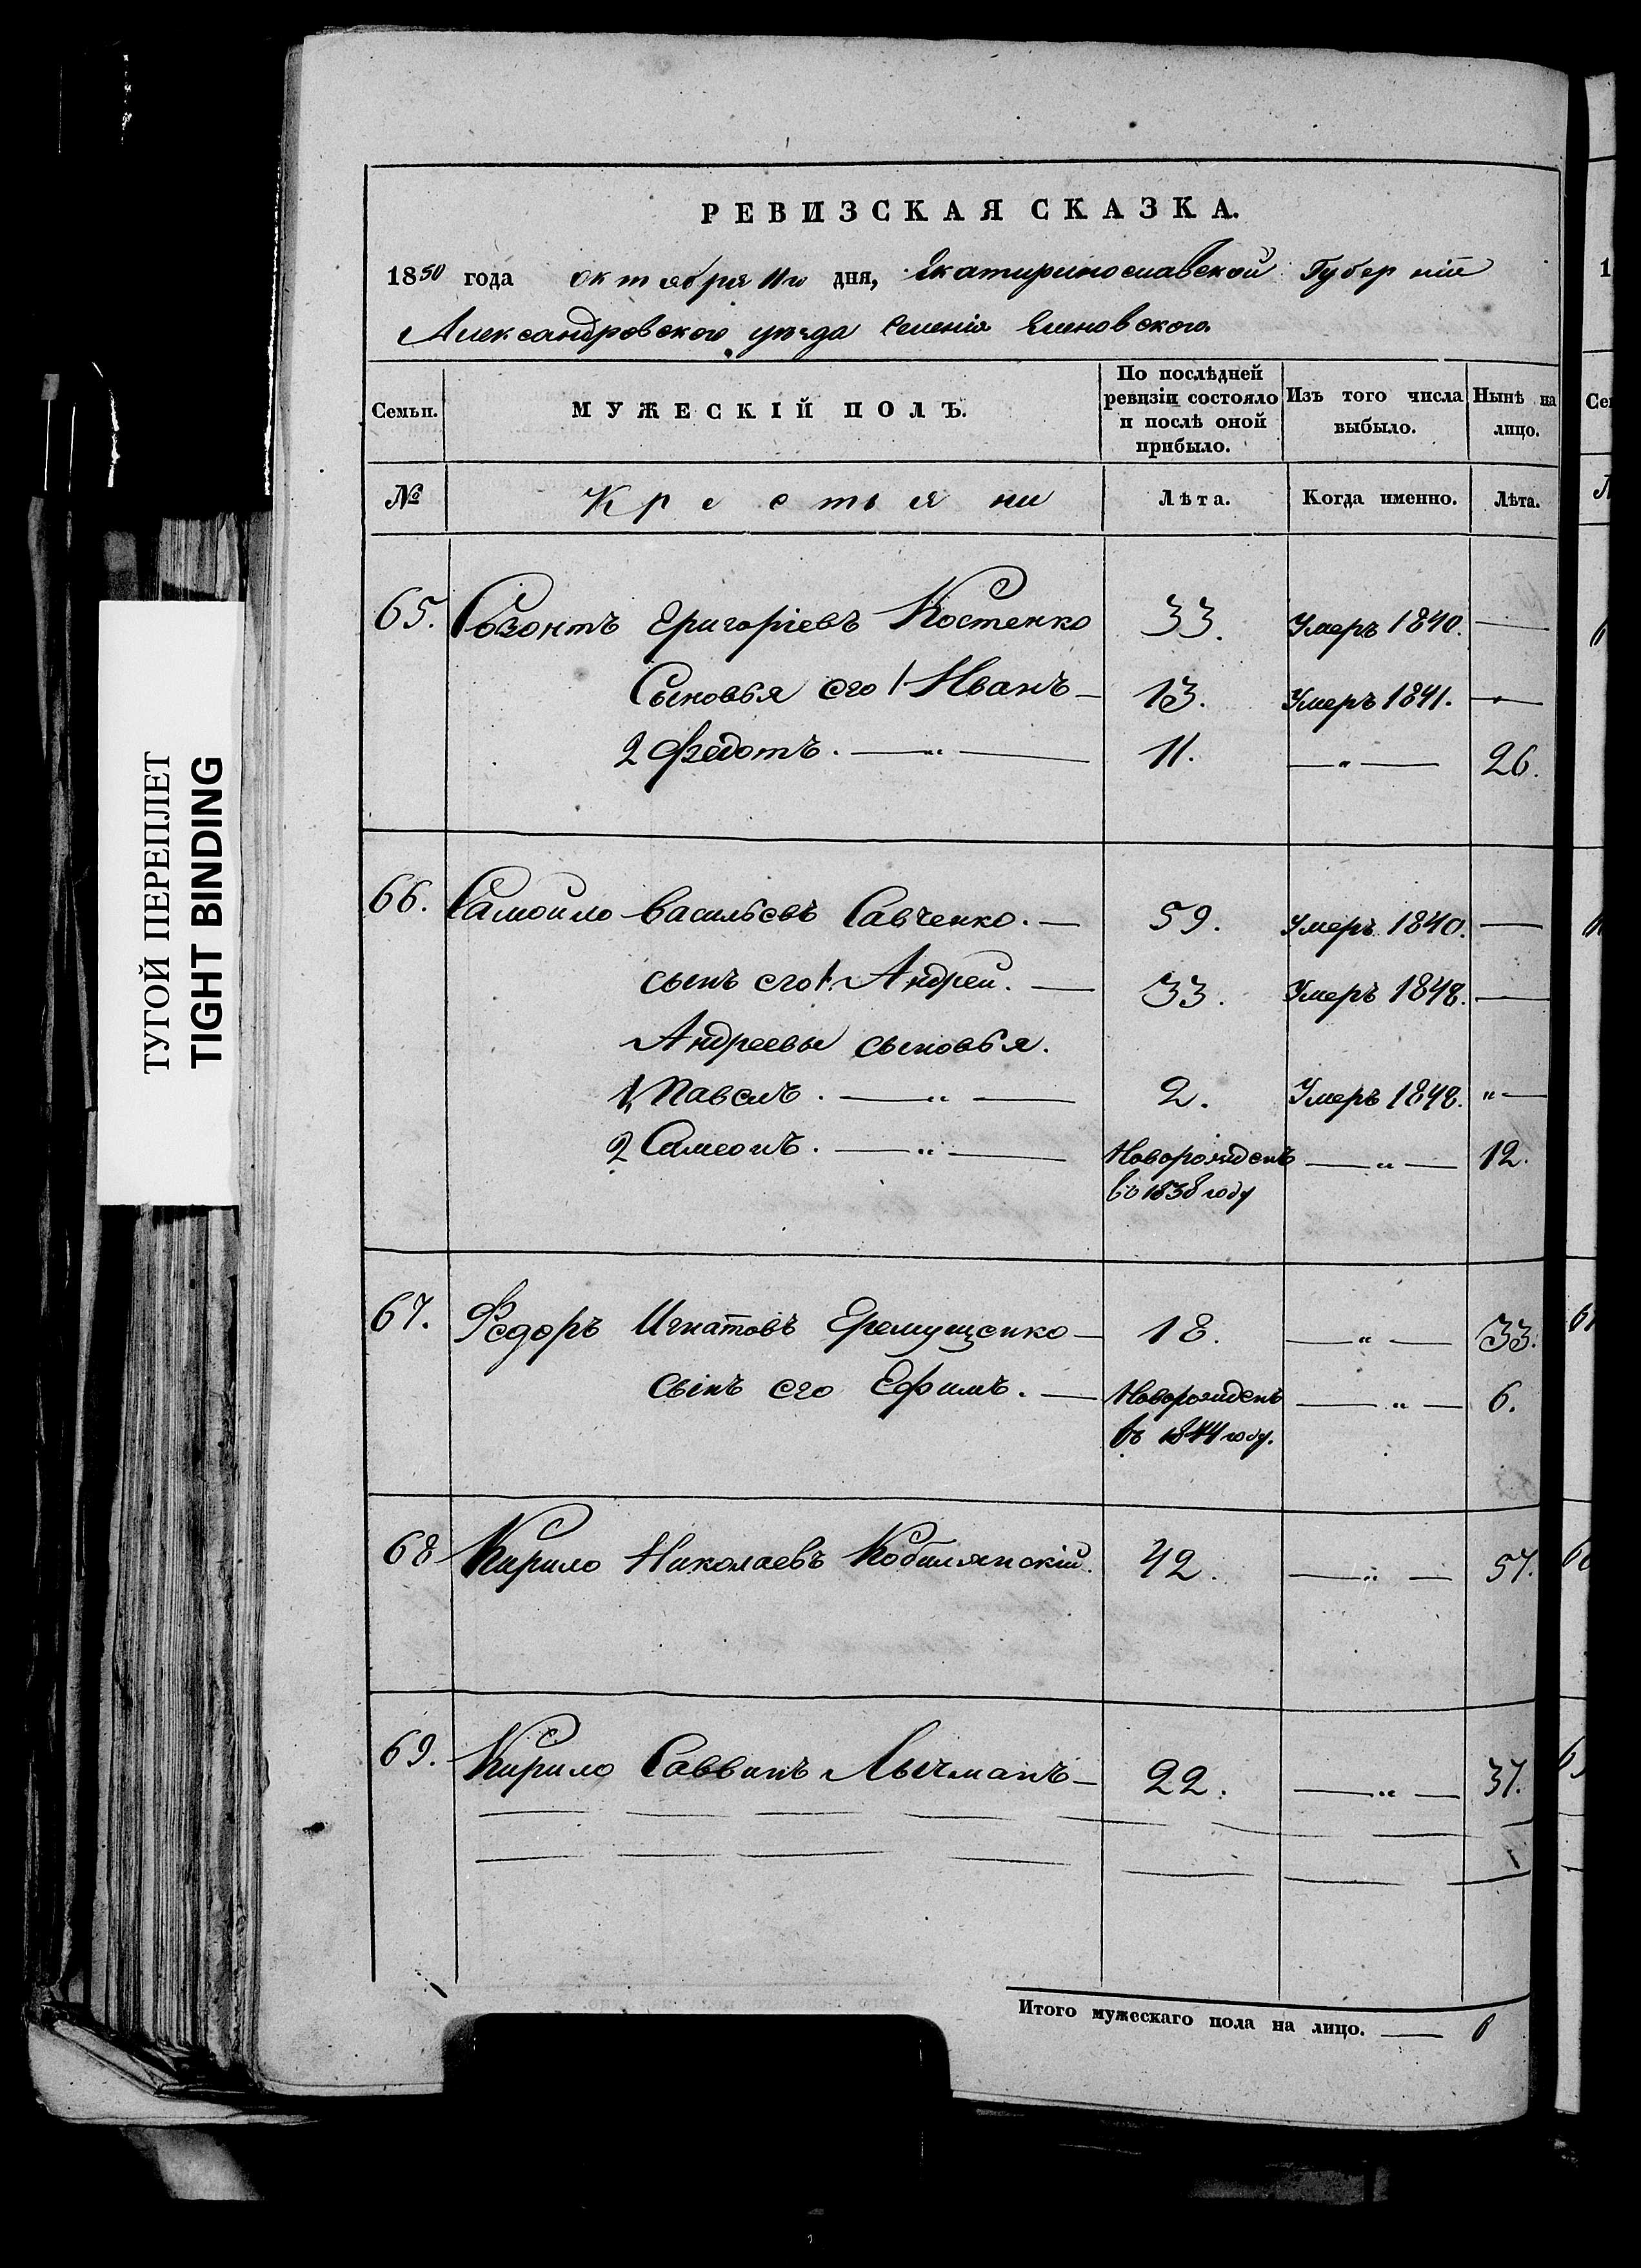 ТУГОЙ ПЕРЕПЛЕТ
TIGHT BINDING
РЕВИЗСКАЯ СКАЗКА.
1850 года октября 11го дня, Екатиринославской Губерніи
Александровского уѣзда Селенія Еленовского
Семьи. МУЖЕСКІЙ ПОЛЪ. По послѣдней ревизіи состояло и послѣ оной прибыло. Изъ того числа выбыло. Нынѣ на лицо.
№ Крестьяни Лѣта. Когда именно. Лѣта.
65. Созонтъ Григоріевъ Костенко 33. Умеръ 1840. —
Сыновья его 1 Иванъ — 13. Умеръ 1841. —
2 Федотъ. — " — 11. — " — 26.
66. Самойло Васильевъ Савченко. — 59. Умеръ 1840. —
сынъ его 1. Андрей. — 33. Умеръ 1848. —
Андреевы сыновья.
1 Павелъ. — " — 2. Умеръ 1848. " —
2 Самеонъ. — " — Новорожденъ — " — 12.
въ 1838 году
67. Федоръ Игнатовъ Еремущенко — 18. — " — 33.
сынъ его Ефимъ. — Новорожденъ — " — 6.
въ 1844 году.
68 Кирило Николаевъ Кобилянскій. 42. — " — 57.
69. Кирило Саввинъ Лычманъ — 22. — " — 37.
Итого мужескаго пола на лицо. — 6